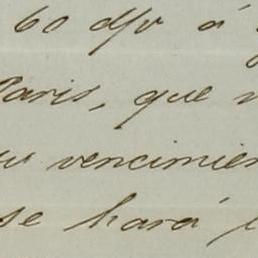 60 d/v á
Paris, que
su vencimien
se hará